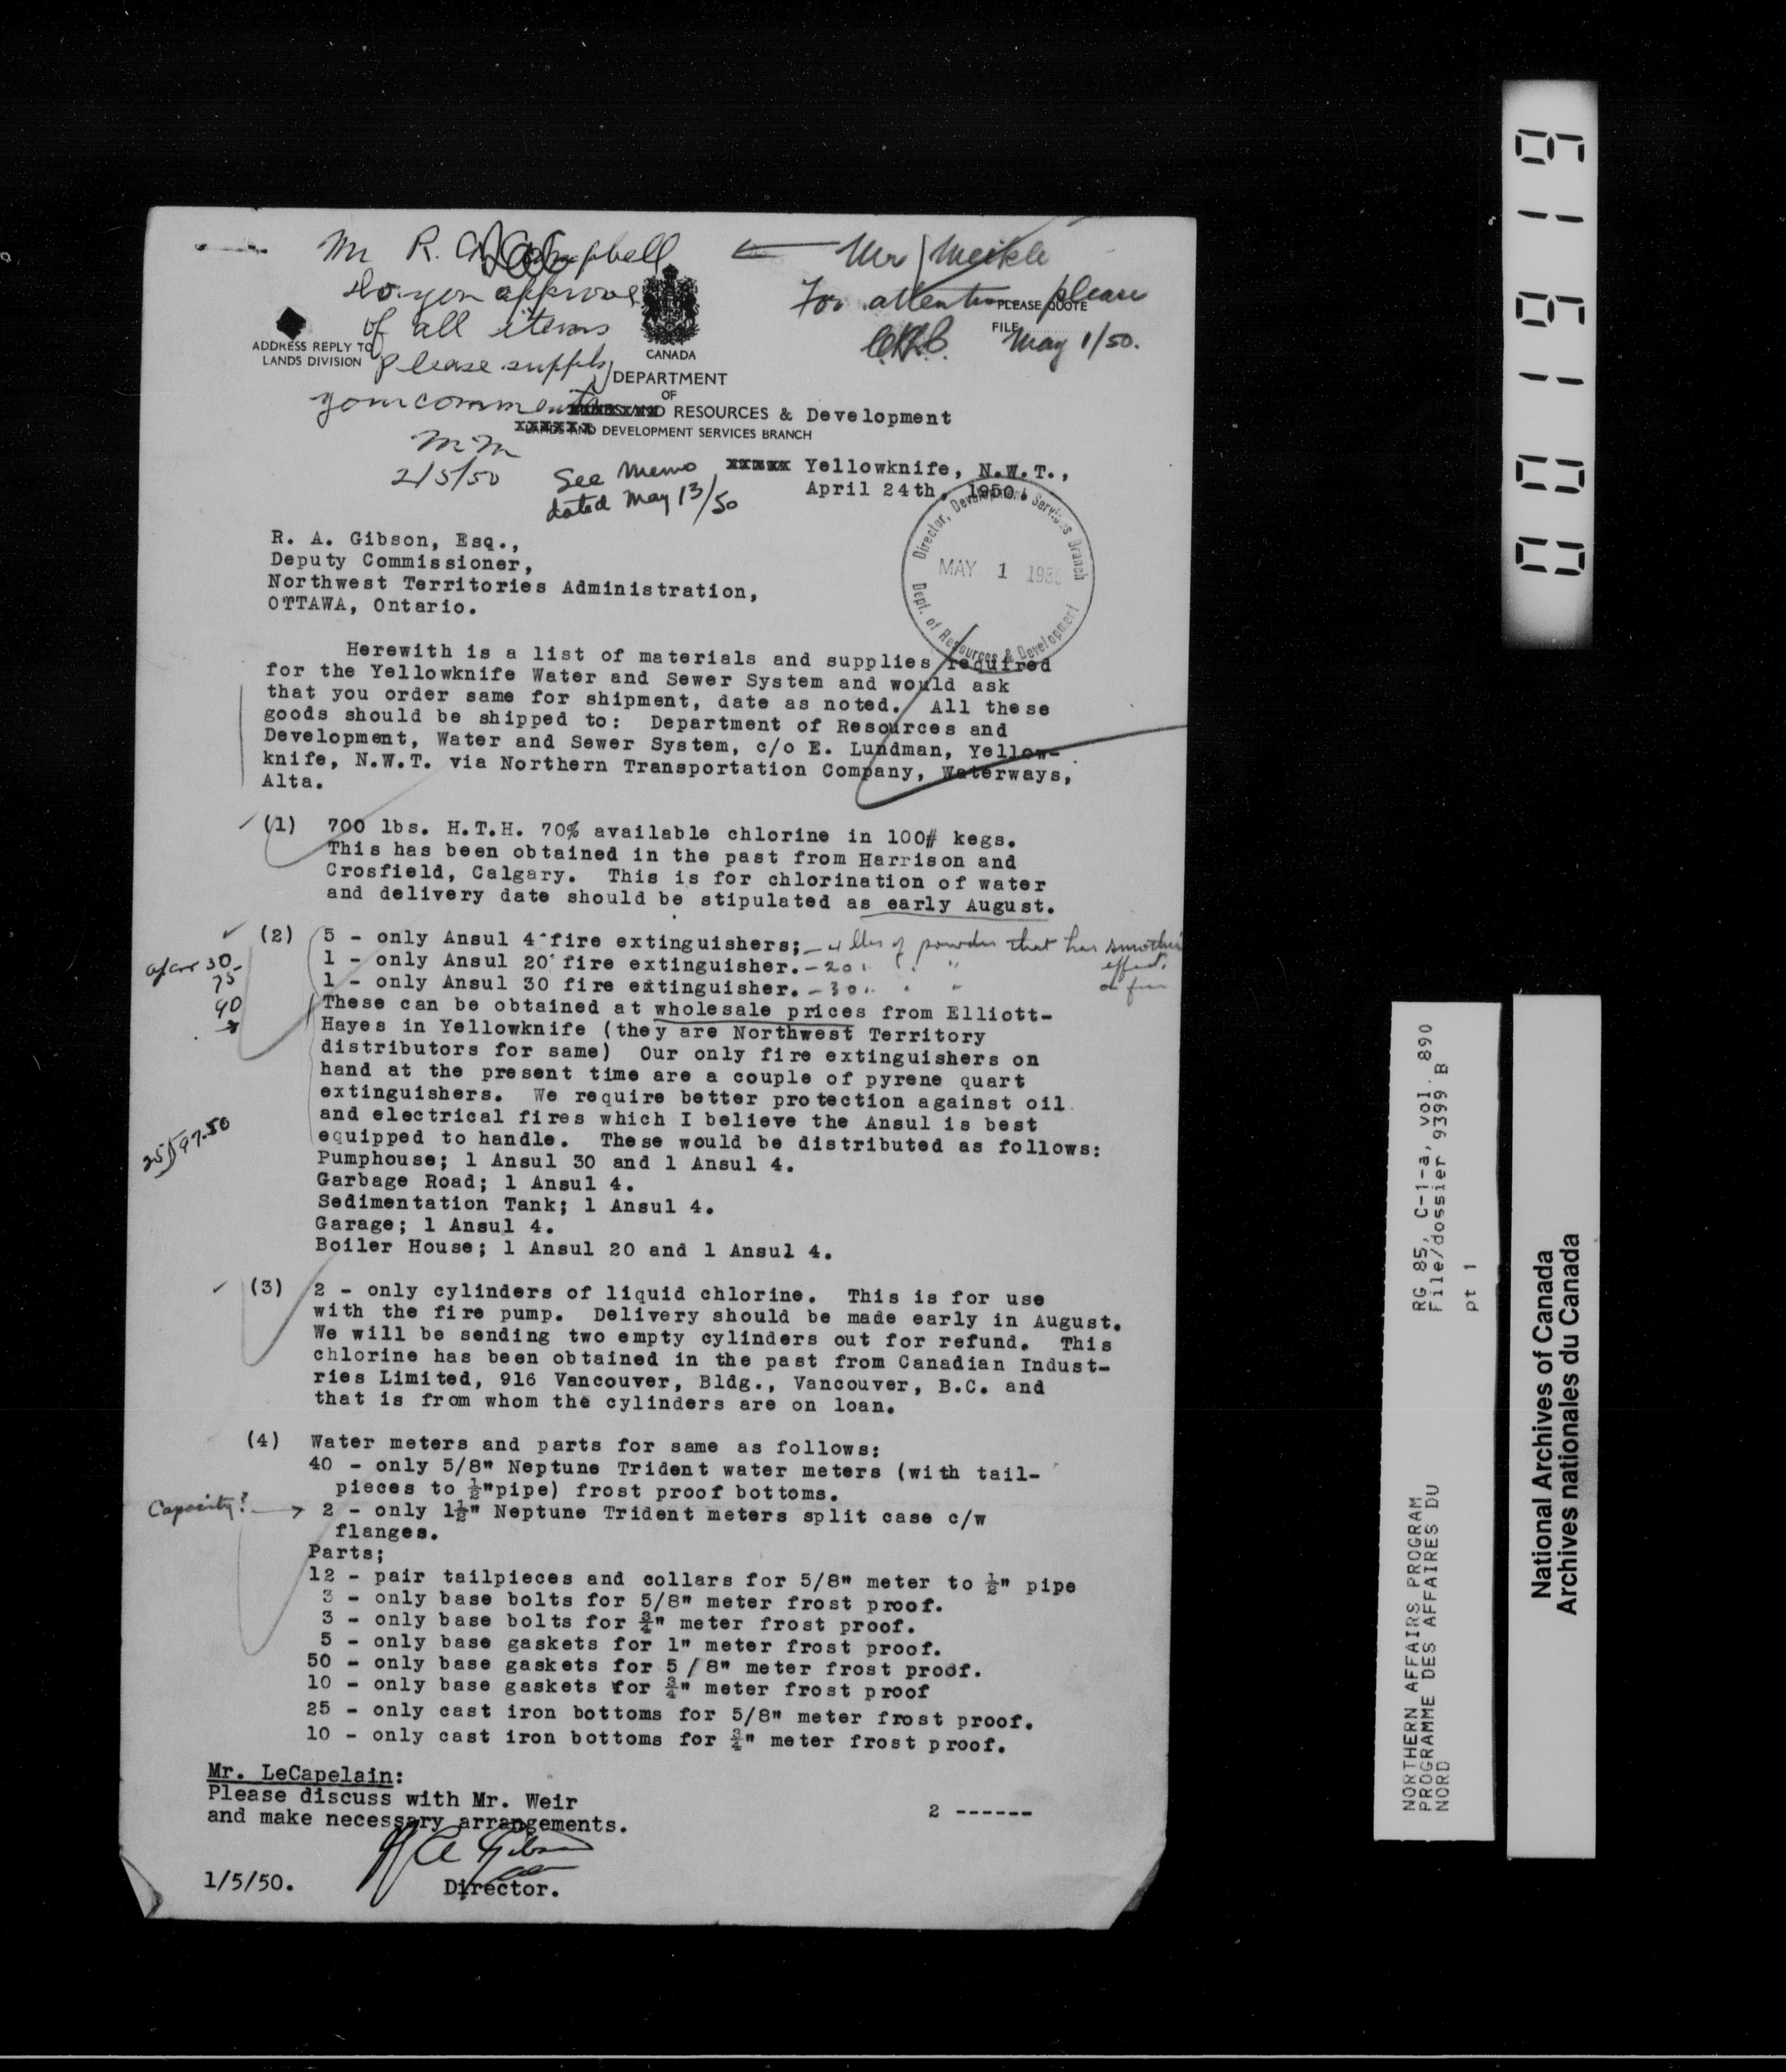 Mr R. A. Campbell
Do you approve
of all items
please supply
your comments
M M
2/5/50
Mr Meikle
For attention please
May 1/50.
See Memo
dated May 13/50
PLEASE QUOTE
FILE
ADDRESS REPLY TO
LANDS DIVISION
CANADA
DEPARTMENT
OF
RESOURCES & Development
LANDS AND DEVELOPMENT SERVICES BRANCH
xxxxx Yellowknife, N.W.T.,
April 24th, 1950.
Director, Development Services Branch
MAY 1 1950
Dept. of Resources & Development
R. A. Gibson, Esq.,
Deputy Commissioner,
Northwest Territories Administration,
OTTAWA, Ontario.
Herewith is a list of materials and supplies required
for the Yellowknife Water and Sewer System and would ask
that you order same for shipment, date as noted. All these
goods should be shipped to: Department of Resources and
Development, Water and Sewer System, c/o E. Lundman, Yellow-
knife, N.W.T. via Northern Transportation Company, Waterways,
Alta.
(1) 700 lbs. H.T.H. 70% available chlorine in 100# kegs.
This has been obtained in the past from Harrison and
Crosfield, Calgary. This is for chlorination of water
and delivery date should be stipulated as early August.
(2) 5 - only Ansul 4 fire extinguishers; - 4 lbs of powder that has smother
1 - only Ansul 20 fire extinguisher. - 20 " " " effect
1 - only Ansul 30 fire extinguisher. - 30 " " " on fire
30
75
90
These can be obtained at wholesale prices from Elliott-
Hayes in Yellowknife (they are Northwest Territory
distributors for same) Our only fire extinguishers on
hand at the present time are a couple of pyrene quart
extinguishers. We require better protection against oil
and electrical fires which I believe the Ansul is best
equipped to handle. These would be distributed as follows:
25)97.50
Pumphouse; 1 Ansul 30 and 1 Ansul 4.
Garbage Road; 1 Ansul 4.
Sedimentation Tank; 1 Ansul 4.
Garage; 1 Ansul 4.
Boiler House; 1 Ansul 20 and 1 Ansul 4.
(3) 2 - only cylinders of liquid chlorine. This is for use
with the fire pump. Delivery should be made early in August.
We will be sending two empty cylinders out for refund. This
chlorine has been obtained in the past from Canadian Indust-
ries Limited, 916 Vancouver, Bldg., Vancouver, B.C. and
that is from whom the cylinders are on loan.
(4) Water meters and parts for same as follows:
40 - only 5/8" Neptune Trident water meters (with tail-
pieces to ½"pipe) frost proof bottoms.
Capacity? → 2 - only 1½" Neptune Trident meters split case c/w
flanges.
Parts;
12 - pair tailpieces and collars for 5/8" meter to ½" pipe
3 - only base bolts for 5/8" meter frost proof.
3 - only base bolts for ¾" meter frost proof.
5 - only base gaskets for 1" meter frost proof.
50 - only base gaskets for 5/8" meter frost proof.
10 - only base gaskets for ¾" meter frost proof
25 - only cast iron bottoms for 5/8" meter frost proof.
10 - only cast iron bottoms for ¾" meter frost proof.
Mr. LeCapelain:
Please discuss with Mr. Weir
and make necessary arrangements.
2 ------
R A Gibson
1/5/50.
Director.
001919
RG 85, C-1-a, vol. 890
File/dossier 9399 B
pt 1
NORTHERN AFFAIRS PROGRAM
PROGRAMME DES AFFAIRES DU
NORD
National Archives of Canada
Archives nationales du Canada